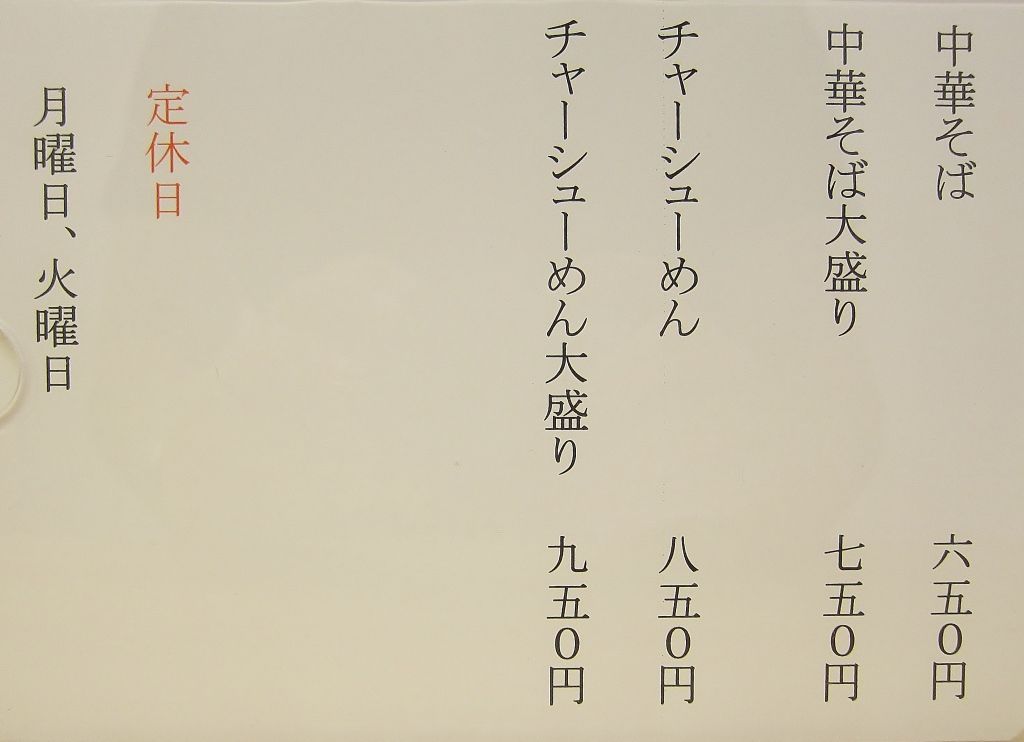 中華そば 六五０円
中華そば大盛り 七五０円
チャーシューめん 八五０円
チャーシューめん大盛り 九五０円
定休日
月曜日、火曜日